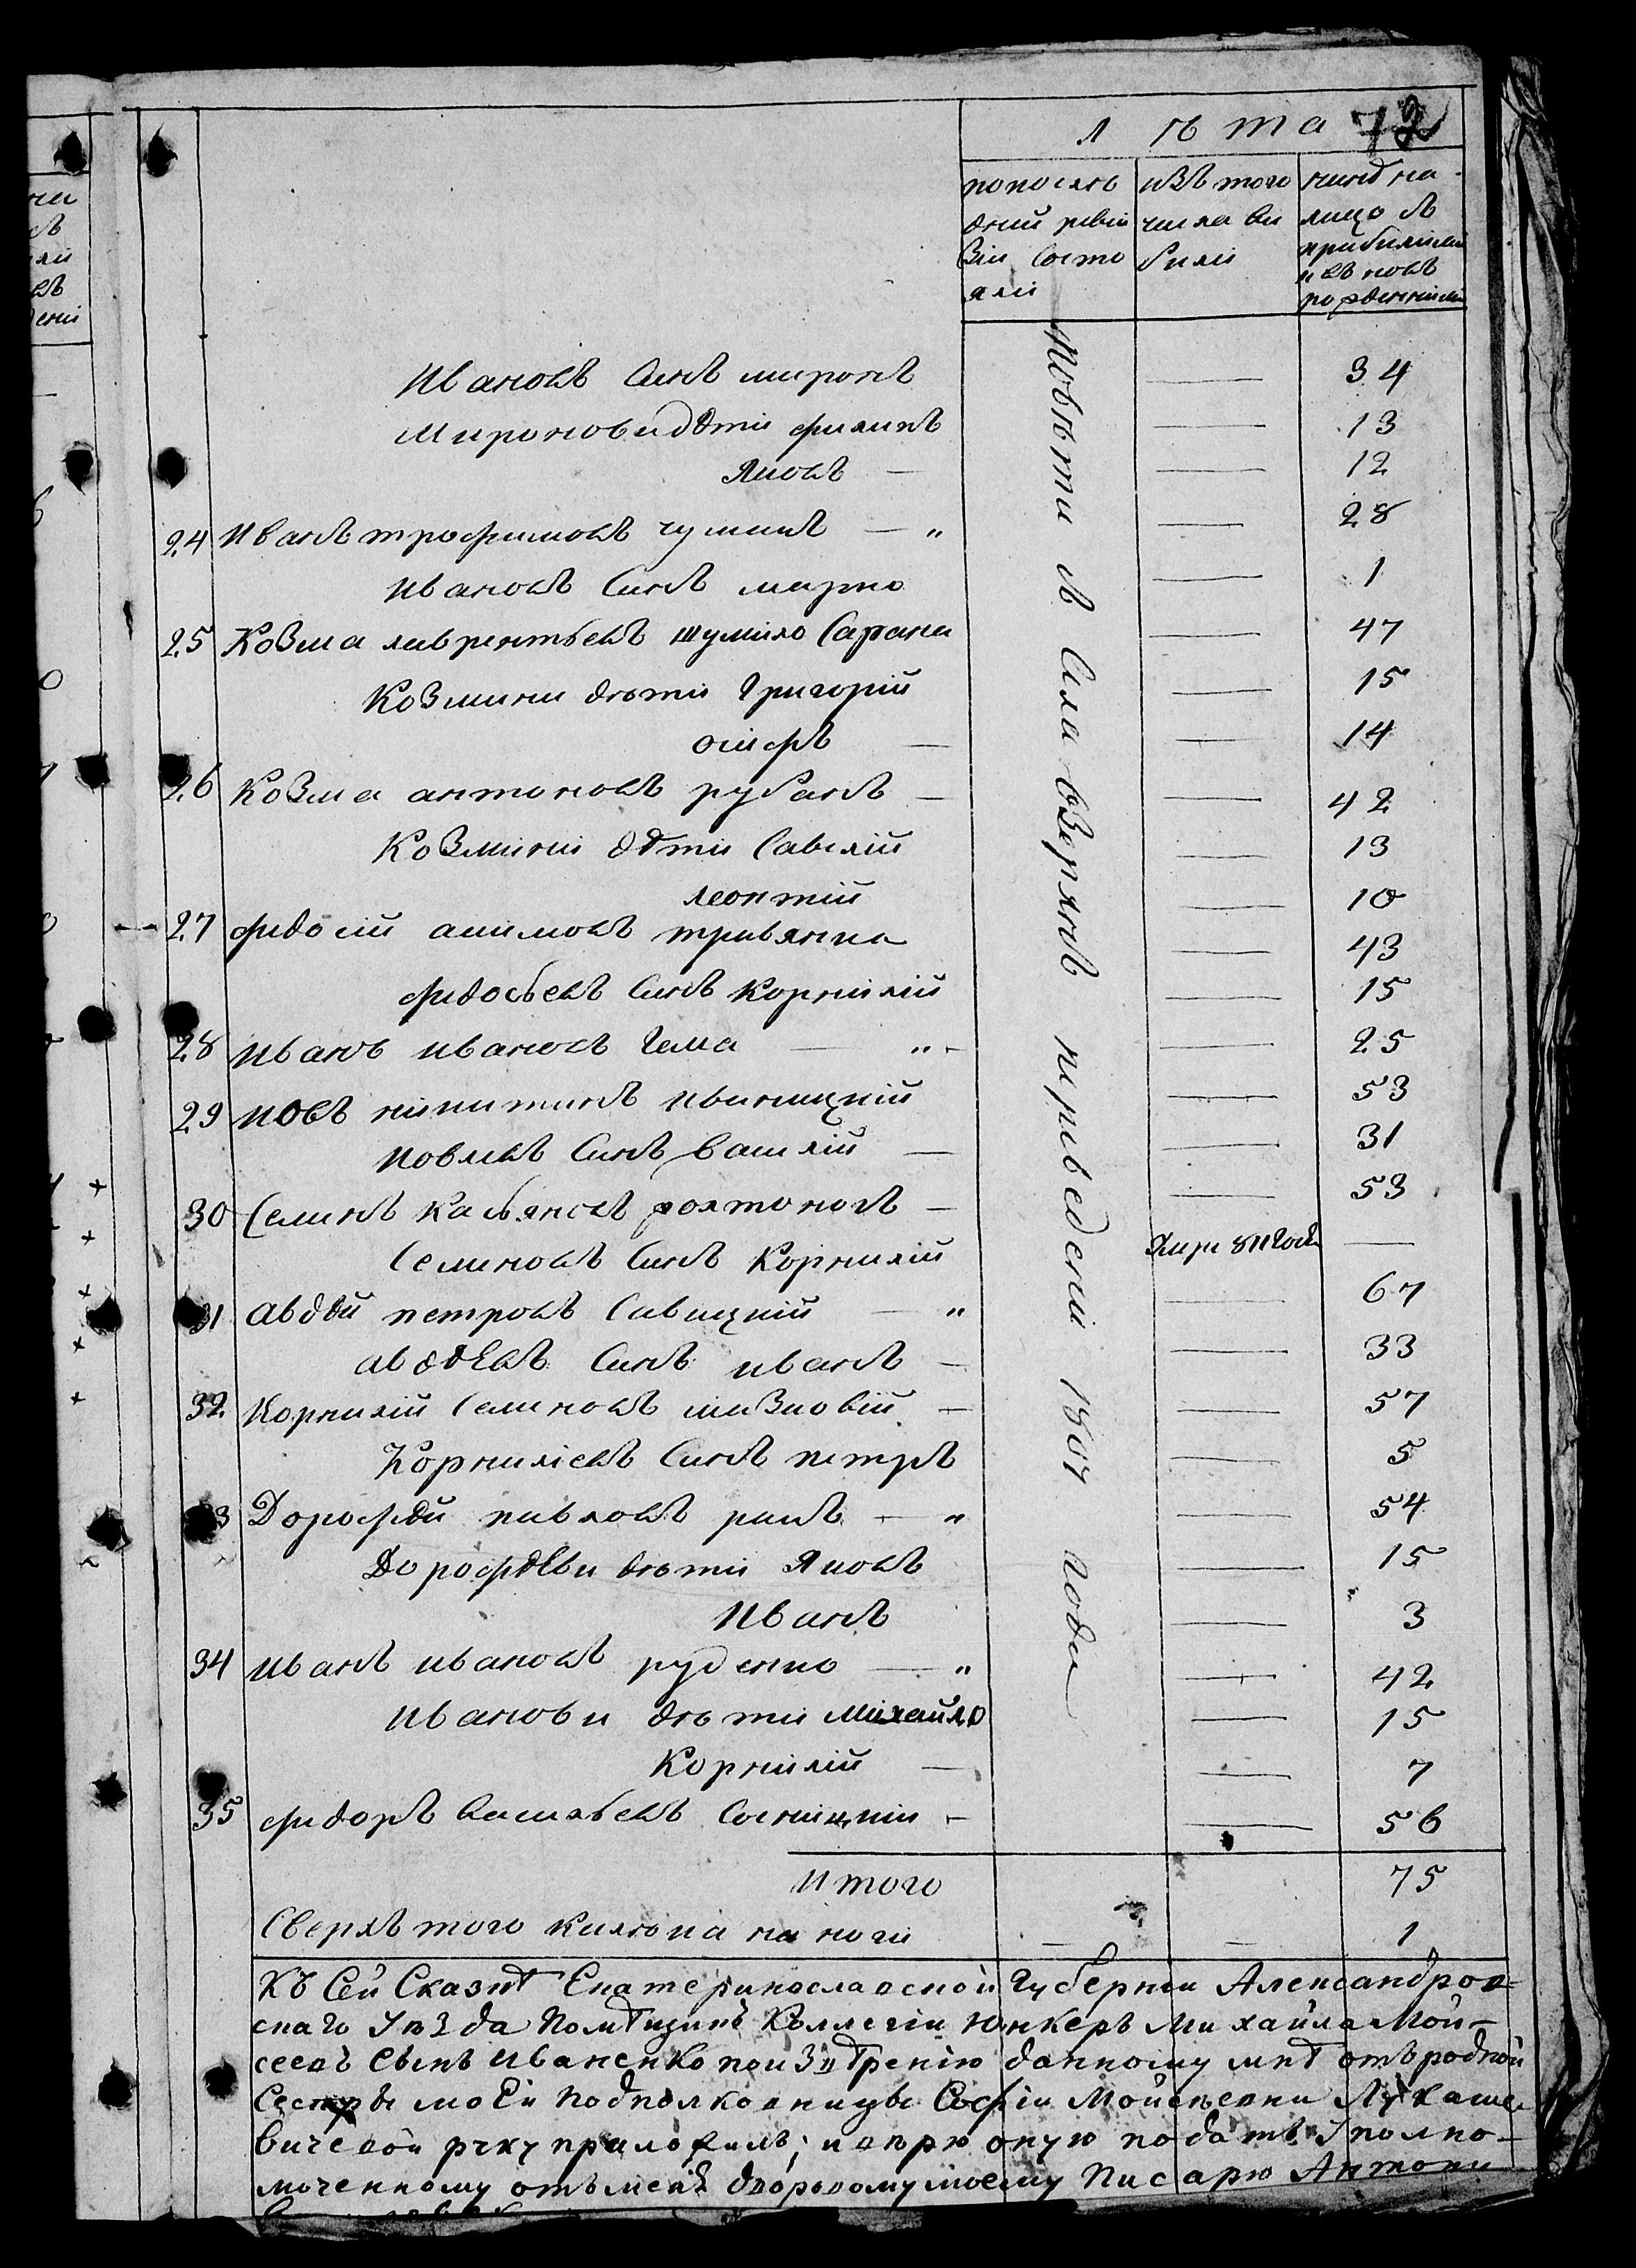 лѣта 72
попослѣ изъ того нинѣ на
дней реви числа ви лицо съ
зіи состо били прибилими
яли и въ новь
рожденними
Ивановъ синъ миронъ — 34
Миронови дѣти филипъ — 13
Яковъ — — 12
24 Иванъ трофимовъ чумакъ — " — 28
Ивановъ синъ марко — 1
25 Козма лаврентьевъ шумило Сарана — 47
Козмини дѣти Григорій — 15
осифъ — — 14
26 Козма антоновъ рубанъ — — 42
Козмини дѣти Савелій — 13
леонтий — 10
27 федосій акимовъ травянка — 43
федосѣевъ синъ Корнилій — 15
28 иванъ ивановъ Чема — " — 25
29 иовъ никитинъ ивницкий — 53
иовлевъ синъ василій — — 31
30 Семинъ касьяновъ — — 53
Семиновъ синъ Корнилій —
31 авдѣй петровъ Савицкий — " — 67
авдѣевъ синъ иванъ — — 33
32 Корнилій Семиновъ — — 57
Корниліевъ синъ петръ — 5
33 Дорофѣй павловъ ракъ — " — 54
Дорофѣеви дѣти Яковъ — 15
Иванъ — 3
34 иванъ ивановъ руденко — " — 42
Иванови дѣти михайло — 15
Корнилій — — 7
35 федоръ васильевъ Сосницкий — — 56
итого 75
Сверхъ того калѣка на ноги — — 1
Повѣти А Слаовзерянъ переведени 181 года
Къ Сей Сказкѣ Екатеринославской Губернии Александров-
скаго Уѣзда Помѣщикъ Коллегіи Юнкеръ Михайла Мой-
сеевъ Сынъ Иваненко по данному мнѣ отъ родной
Сестры моей Подполковницы Софіи Мойсѣевни Лукаше-
вичевой руку приложилъ; и вѣрю оную подать Уполно-
моченному отъ меня дворовому моему Писарю Антону